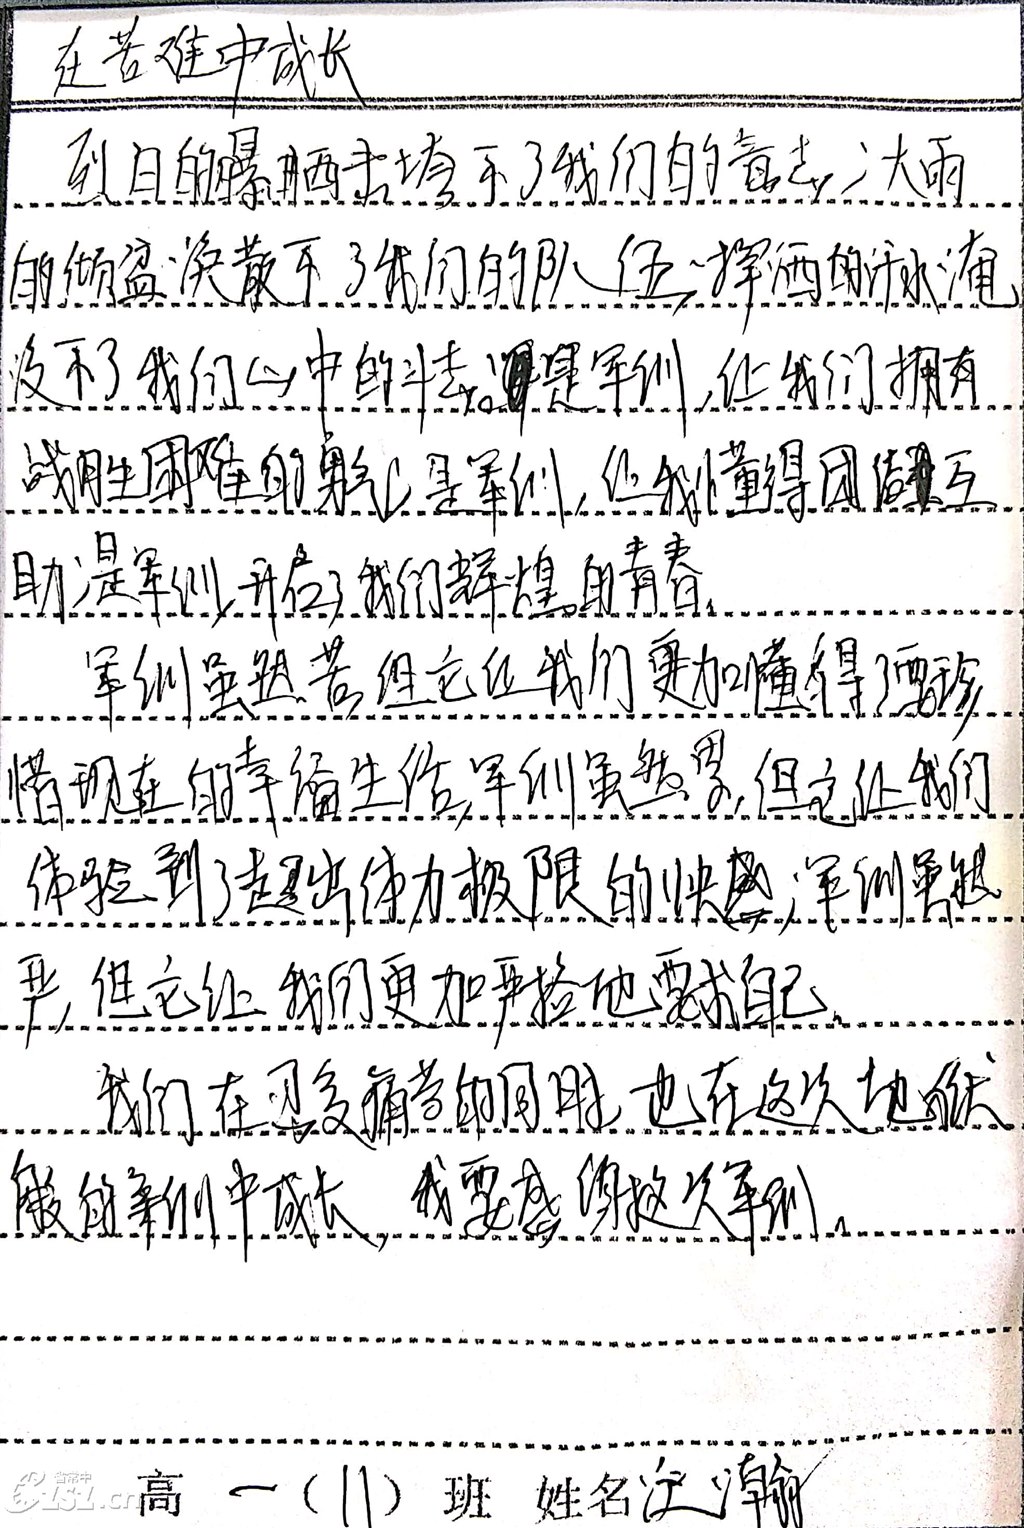 在苦难中成长
烈日的曝晒击垮不了我们的意志,大雨
的倾盆涣散不了我们的队伍,挥洒的汗水淹
没不了我们心中的斗志。是军训,让我们拥有
战胜困难的勇气,是军训,让我懂得团结互
助,是军训,开启了我们辉煌的青春。
军训虽然苦,但它让我们更加懂得了要珍
惜现在的幸福生活,军训虽然累,但它让我们
体验到了超出体力极限的快感,军训虽然
严,但它让我们更加严格地要求自己。
我们在忍受痛苦的同时,也在这次地狱
般的军训中成长,我要感谢这次军训。
高一(11)班 姓名 瀚
省常中
CZ1SZ.cn